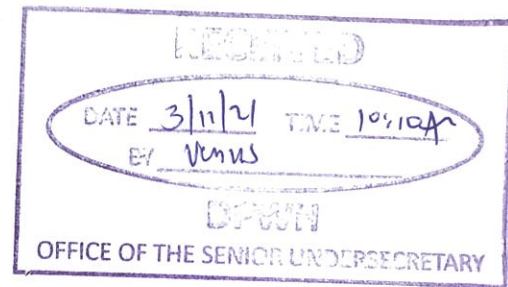 RECEIVED
DATE 3/11/21 TIME 10:10A
BY Venus
DPWH
OFFICE OF THE SENIOR UNDERSECRETARY